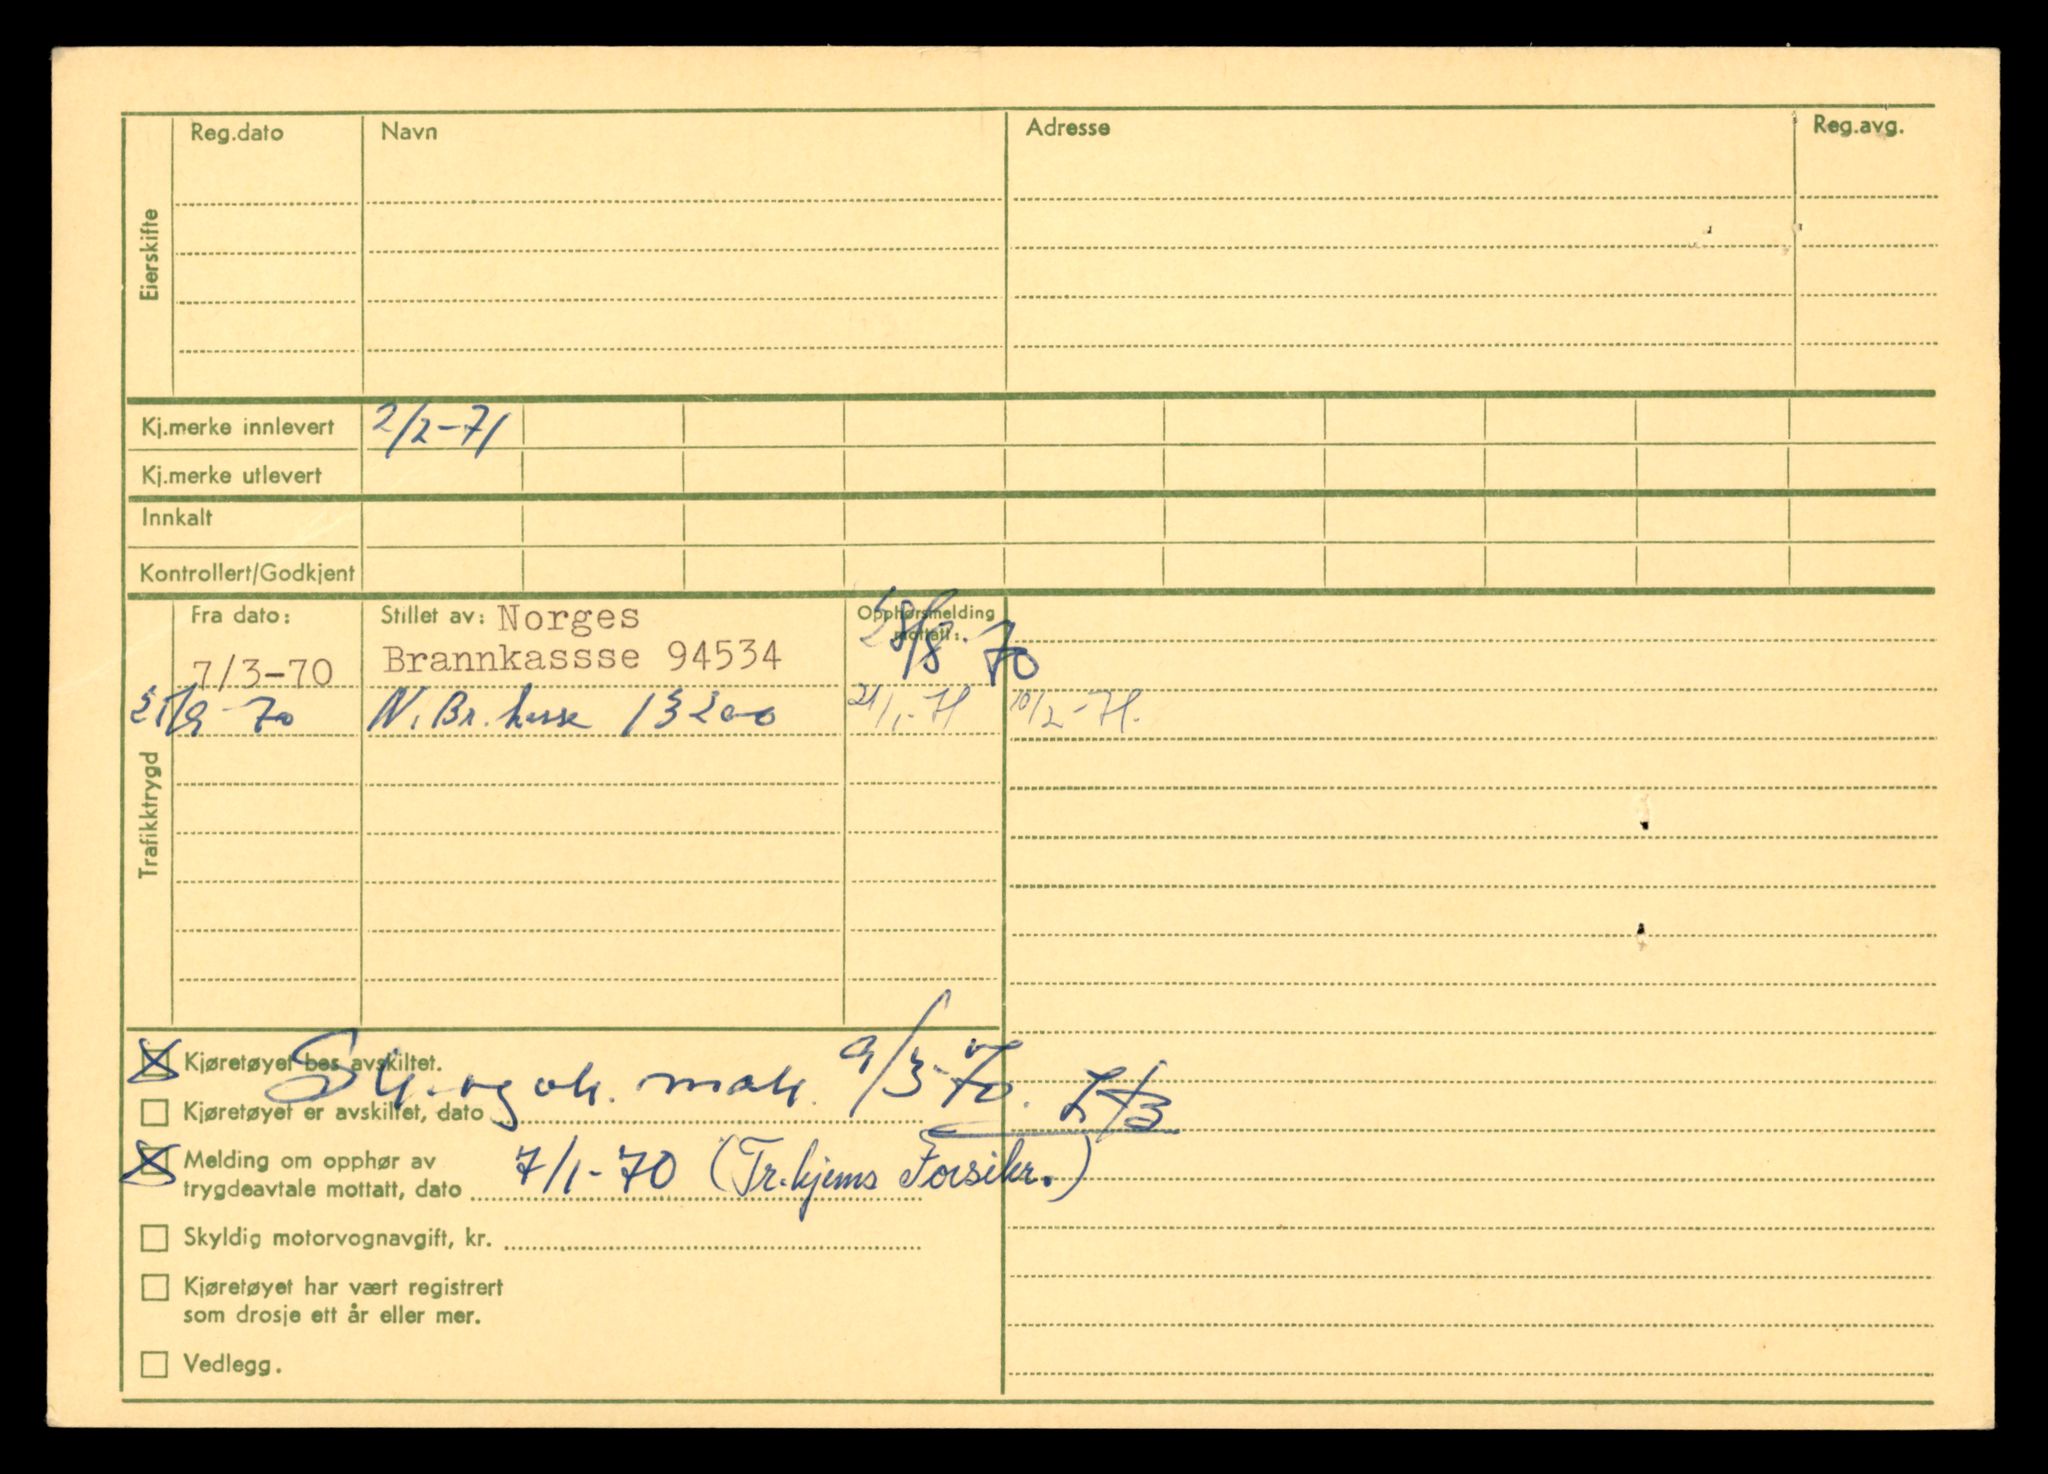 Reg.dato Navn Adresse Reg.avg.
Eierskifte
Kj.merke innlevert 2/2-71
Kj.merke utlevert
Innkalt
Kontrollert/Godkjent
Trafikktrygd
Fra dato: Stillet av: Norges Opphørsmelding
mottatt:
7/3-70 Brannkassse 94534 28/8-70
21/9-70 N. Br. kasse 13200 21/1-71 10/2-71.
Kjøretøyet bes avskiltet.
og 9/3-70.
Kjøretøyet er avskiltet, dato
Melding om opphør av
trygdeavtale mottatt, dato 7/1-70 (Tr.hjems Forsikr.)
Skyldig motorvognavgift, kr.
Kjøretøyet har vært registrert
som drosje ett år eller mer.
Vedlegg.